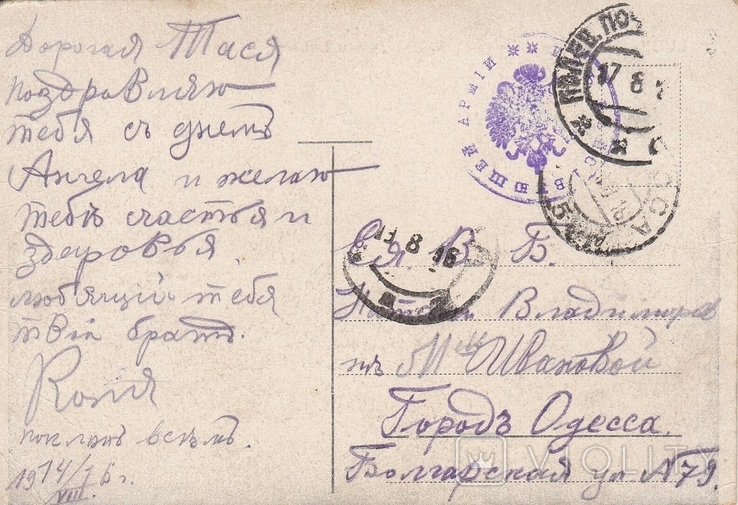 Дорогая Тася
поздравляю
тебя съ днемъ
Ангела и желаю
тебѣ счастья и
здоровья
любящій тебя
твій братъ.
Коля
поклонъ всѣмъ.
19 14/VIII 16 г.
АРШИ
ПОЛЕВ. ПО
17 8
13 8 16
Ея В. Б.
Владимиров
Ивановой
Городъ Одесса.
Болгарская ул №79.
VIOLITY